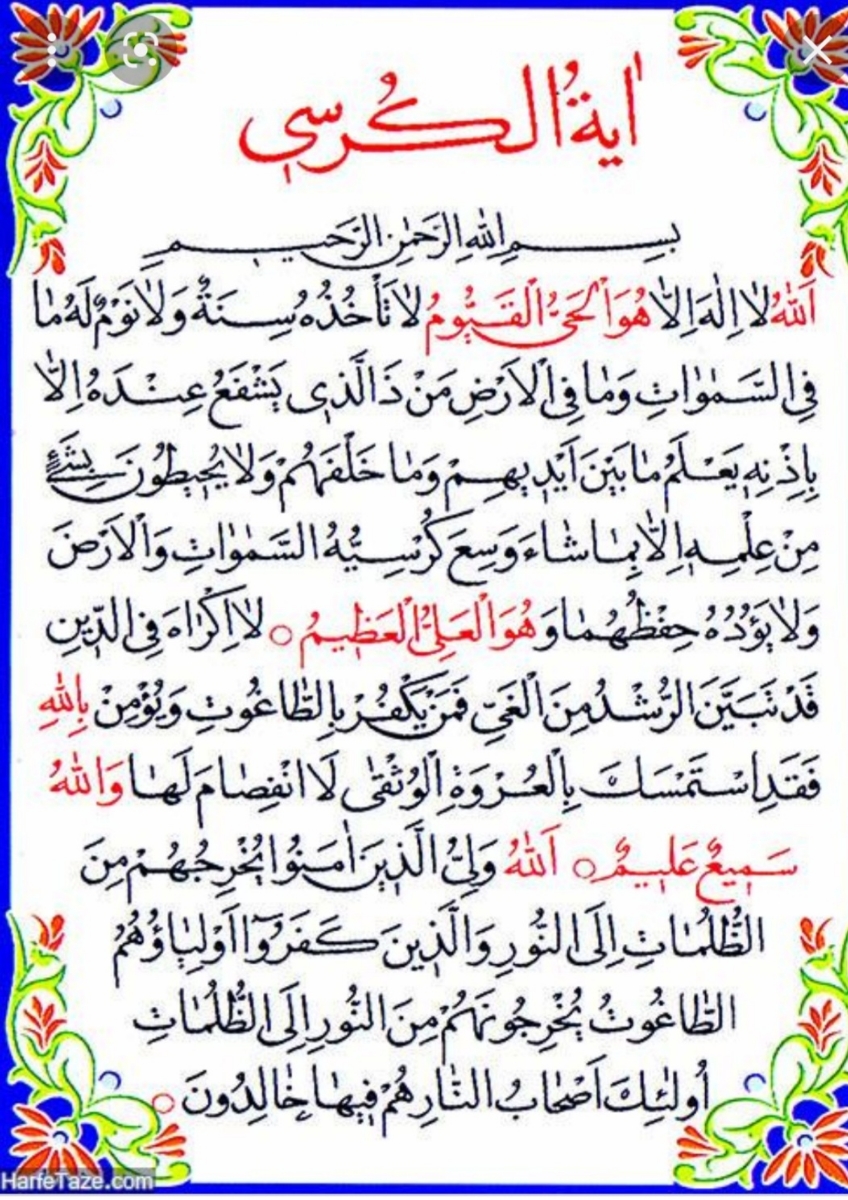 اٰیةُ الکُرسي
بِسمِ اللهِ الرَّحمٰنِ الرَّحیمِ
اَللهُ لا اِلٰهَ اِلاّٰ هُوَ الْحَيُّ الْقَیُّومُ لا تَأْخُذُهُ سِنَةٌ وَلا نَوْمٌ لَهُ مٰا
فِی السَّمٰوٰاتِ وَمٰا فِی الْاَرْضِ مَنْ ذَا الَّذي یَشْفَعُ عِنْدَهُ اِلاّٰ
بِاِذْنِهِ یَعْلَمُ مٰا بَیْنَ اَیْدیهِمْ وَمٰا خَلْفَهُمْ وَلا یُحیطُونَ بِشَيْءٍ
مِنْ عِلْمِهِ اِلاّٰ بِمٰا شٰاءَ وَسِعَ کُرْسِیُّهُ السَّمٰوٰاتِ وَالْاَرْضَ
وَلا یَؤُدُهُ حِفْظُهُمٰا وَ هُوَ الْعَلِيُّ الْعَظیمُ ○ لا اِکْرٰاهَ فِی الدّینِ
قَدْ تَبَیَّنَ الرُّشْدُ مِنَ الْغَيِّ فَمَنْ یَکْفُرْ بِالطّٰاغُوتِ وَیُؤْمِنْ بِاللهِ
فَقَدِ اسْتَمْسَكَ بِالْعُرْوَةِ الْوُثْقٰی لَا انْفِصٰامَ لَهٰا وَاللهُ
سَمیعٌ عَلیمٌ ○ اَللهُ وَلِيُّ الَّذینَ اٰمَنُوا یُخْرِجُهُمْ مِنَ
الظُّلُمٰاتِ اِلَی النُّورِ وَالَّذینَ کَفَرُوٓا اَوْلِیٰاؤُهُمُ
الطّٰاغُوتُ یُخْرِجُونَهُمْ مِنَ النُّورِ اِلَی الظُّلُمٰاتِ
اُولٰئِكَ اَصْحٰابُ النّٰارِ هُمْ فیهٰا خٰالِدُونَ ○
HarfeTaze.com